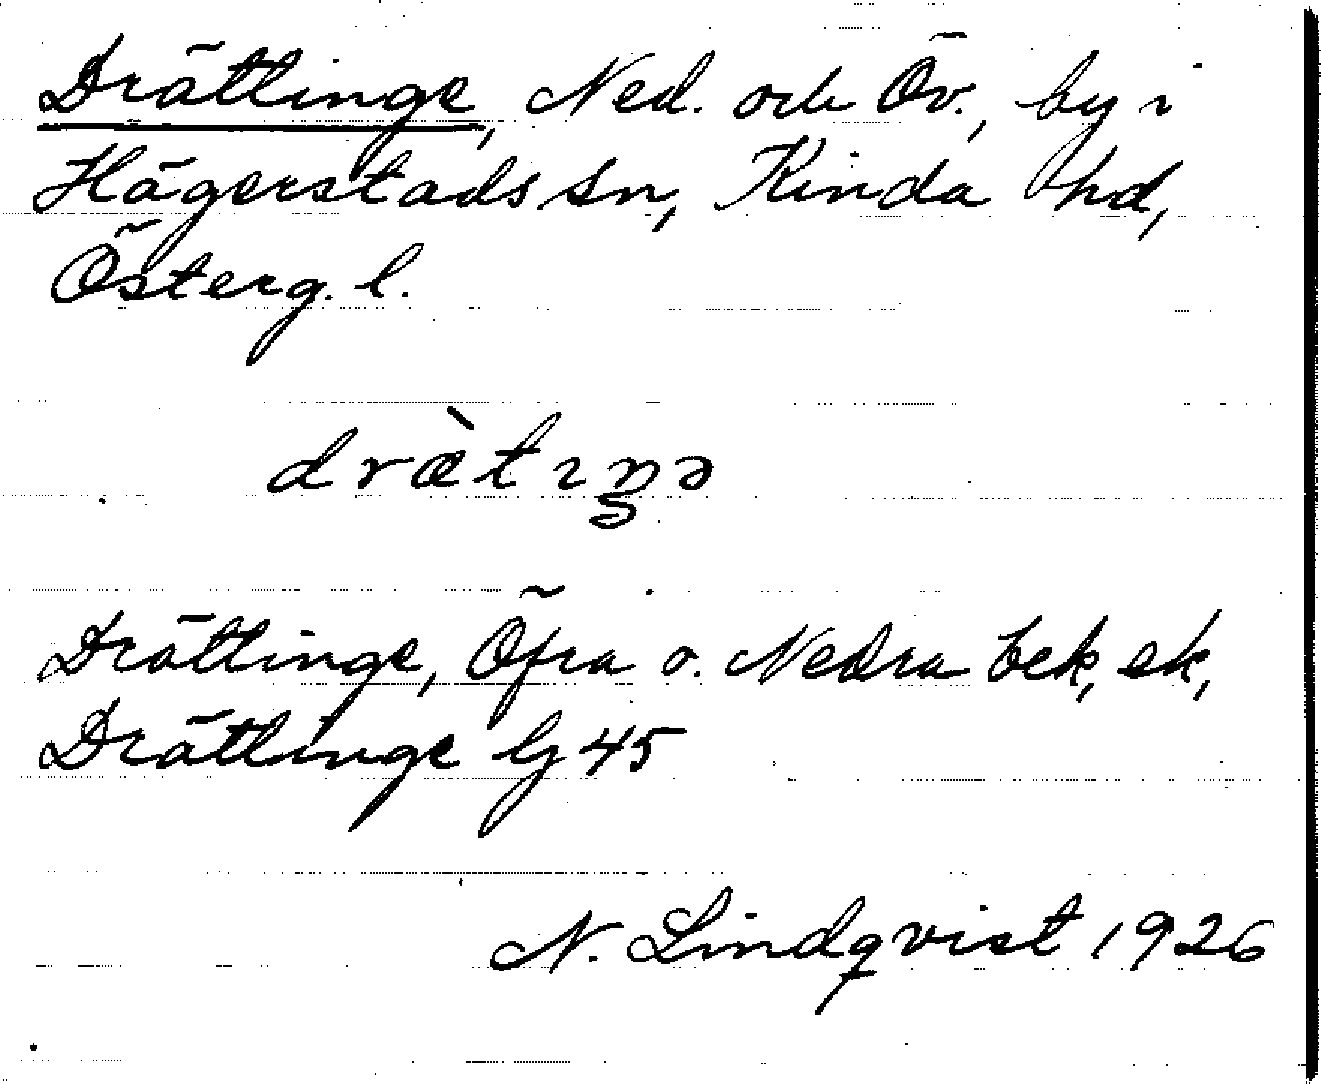 Drättinge, Ned. och Öv., by i
Hägerstads sn, Kinda hd,
Österg. l.
drætıŋə
Drättinge, Öfra o. Nedra bek, ek,
Drättinge G 45
N. Lindqvist 1926